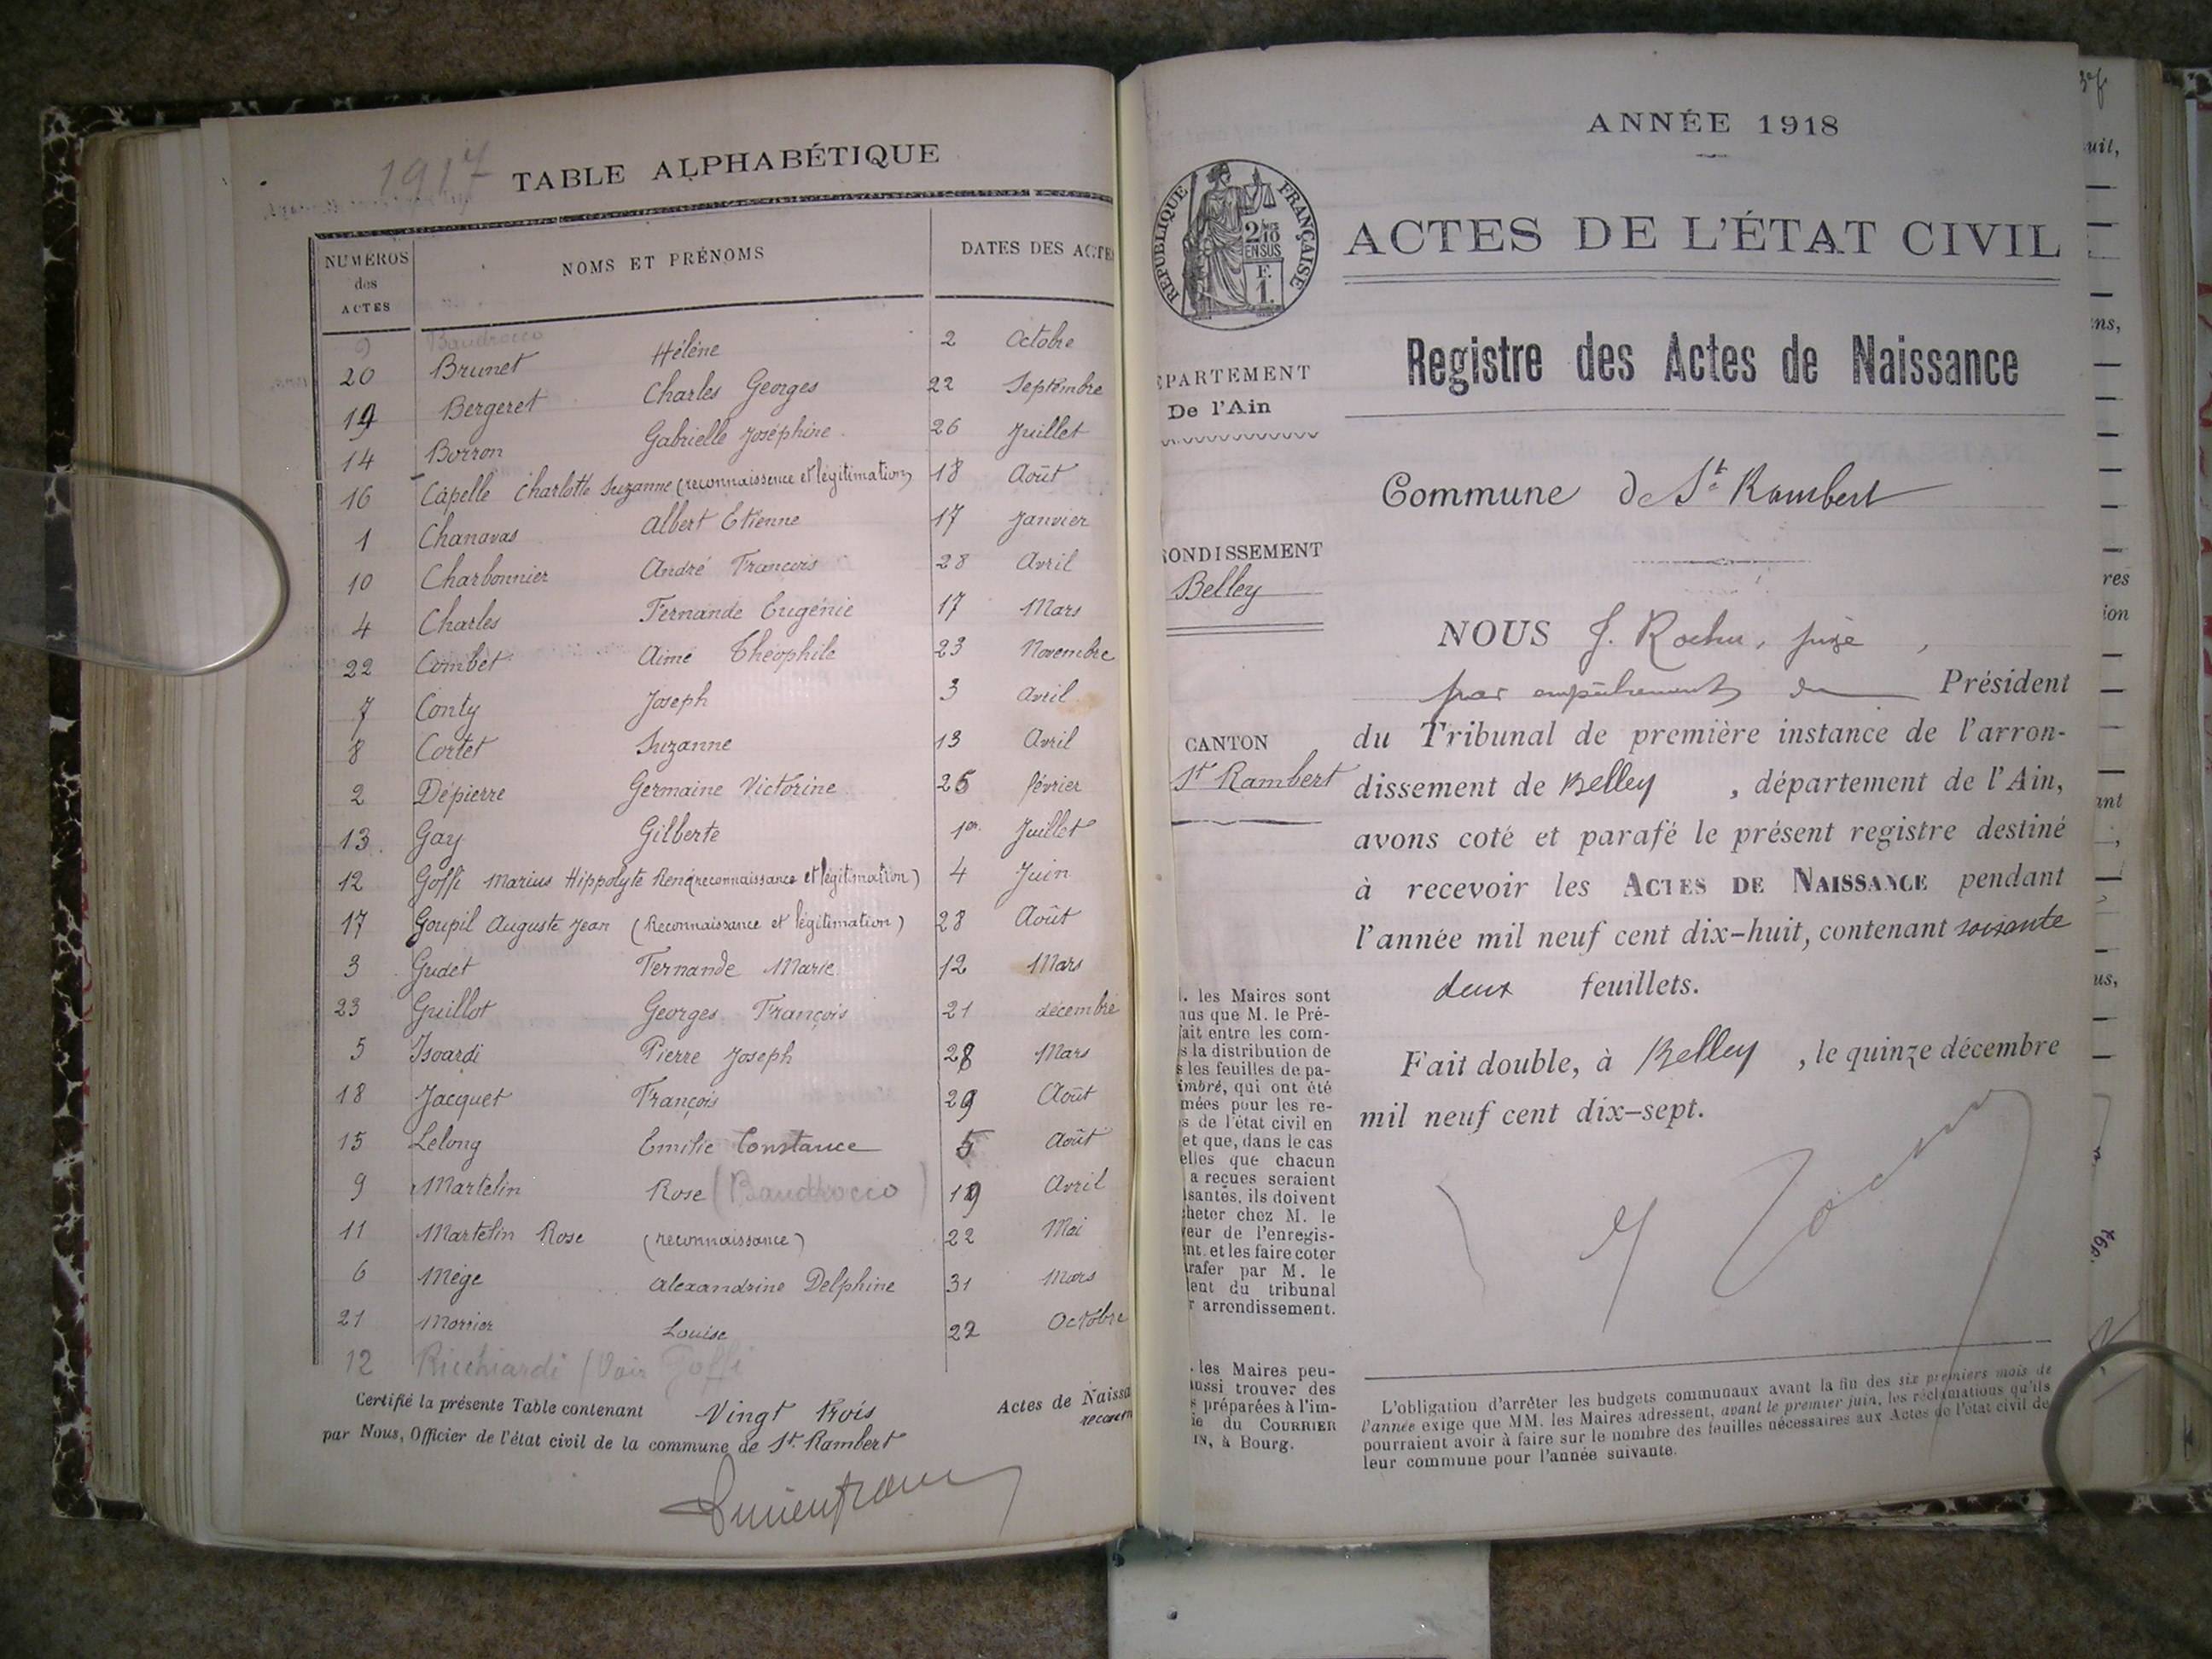 1917 TABLE ALPHABÉTIQUE
NUMÉROS des ACTES NOMS ET PRÉNOMS DATES DES ACTES
9 Baudrocco
20 Brunet Hélène 2 Octobre
19 Bergeret Charles Georges 22 Septembre
14 Borron Gabrielle Joséphine 26 Juillet
16 Capelle Charlotte Suzanne (reconnaissance et légitimation) 18 Août
1 Chanavas Albert Etienne 17 Janvier
10 Charbonnier André François 28 Avril
4 Charles Fernande Eugénie 17 Mars
22 Combet Aimé Théophile 23 Novembre
7 Conty Joseph 3 Avril
8 Cortet Suzanne 13 Avril
2 Dépierre Germaine Victorine 25 février
13. Gay Gilberte 1er Juillet
12 Goffi Marius Hippolyte René (reconnaissance et légitimation) 4 Juin
17 Goupil Auguste Jean (Reconnaissance et légitimation) 28 Août
3 Gudet Fernande Marie 12 Mars
23 Guillot Georges François 21 décembre
5 Isoardi Pierre Joseph 28 Mars
18 Jacquet François 29 Août
15 Lelong Emilie Constance 5 Août
9 Martelin Rose (Baudrocco) 19 Avril
11 Martelin Rose (reconnaissance) 22 Mai
6 Mège Alexandrine Delphine 31 Mars
21 Morrier Louise 22 Octobre
12 Ricchiardi (Voir Goffi
Certifié la présente Table contenant Vingt trois Actes de Naissa
par Nous, Officier de l'état civil de la commune de St. Rambert
ANNÉE 1918
RÉPUBLIQUE FRANÇAISE
2/10 EN SUS
F. 1.
ACTES DE L'ÉTAT CIVIL
Registre des Actes de Naissance
ÉPARTEMENT
De l'Ain
Commune de St Rambert
RONDISSEMENT
Belley
CANTON
St Rambert
NOUS J. Rochu, juge,
par empêchement du Président
du Tribunal de première instance de l'arron-
dissement de Belley, département de l'Ain,
avons coté et parafé le présent registre destiné
à recevoir les ACTES DE NAISSANCE pendant
l'année mil neuf cent dix-huit, contenant soixante
deux feuillets.
Fait double, à Belley, le quinze décembre
mil neuf cent dix-sept.
. les Maires sont
nus que M. le Pré-
fait entre les com-
s la distribution de
s les feuilles de pa-
imbré, qui ont été
mées pour les re-
s de l'état civil en
et que, dans le cas
elles que chacun
a reçues seraient
isantes, ils doivent
heter chez M. le
veur de l'enregis-
nt, et les faire coter
rafer par M. le
lent du tribunal
r arrondissement.
. les Maires peu-
aussi trouver des
s préparées à l'im-
ie du COURRIER
IN, à Bourg.
L'obligation d'arrêter les budgets communaux avant la fin des six premiers mois de
l'année exige que MM. les Maires adressent, avant le premier juin, les réclamations qu'ils
pourraient avoir à faire sur le nombre des feuilles nécessaires aux Actes de l'état civil de
leur commune pour l'année suivante.
uit,
ns,
res
ion
ant
us,